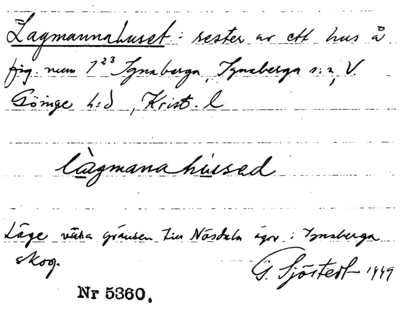 Lagmannahuset: rester av ett hus å
fig. num 1²³ Ignaberga, Ignaberga s:n, V.
Göinge h:d, Krist. l
làgmanahùsed
Läge: västra gränsen till Nösdala ägor i Ignaberga
skog.
G. Sjöstedt 1949
Nr 5360.